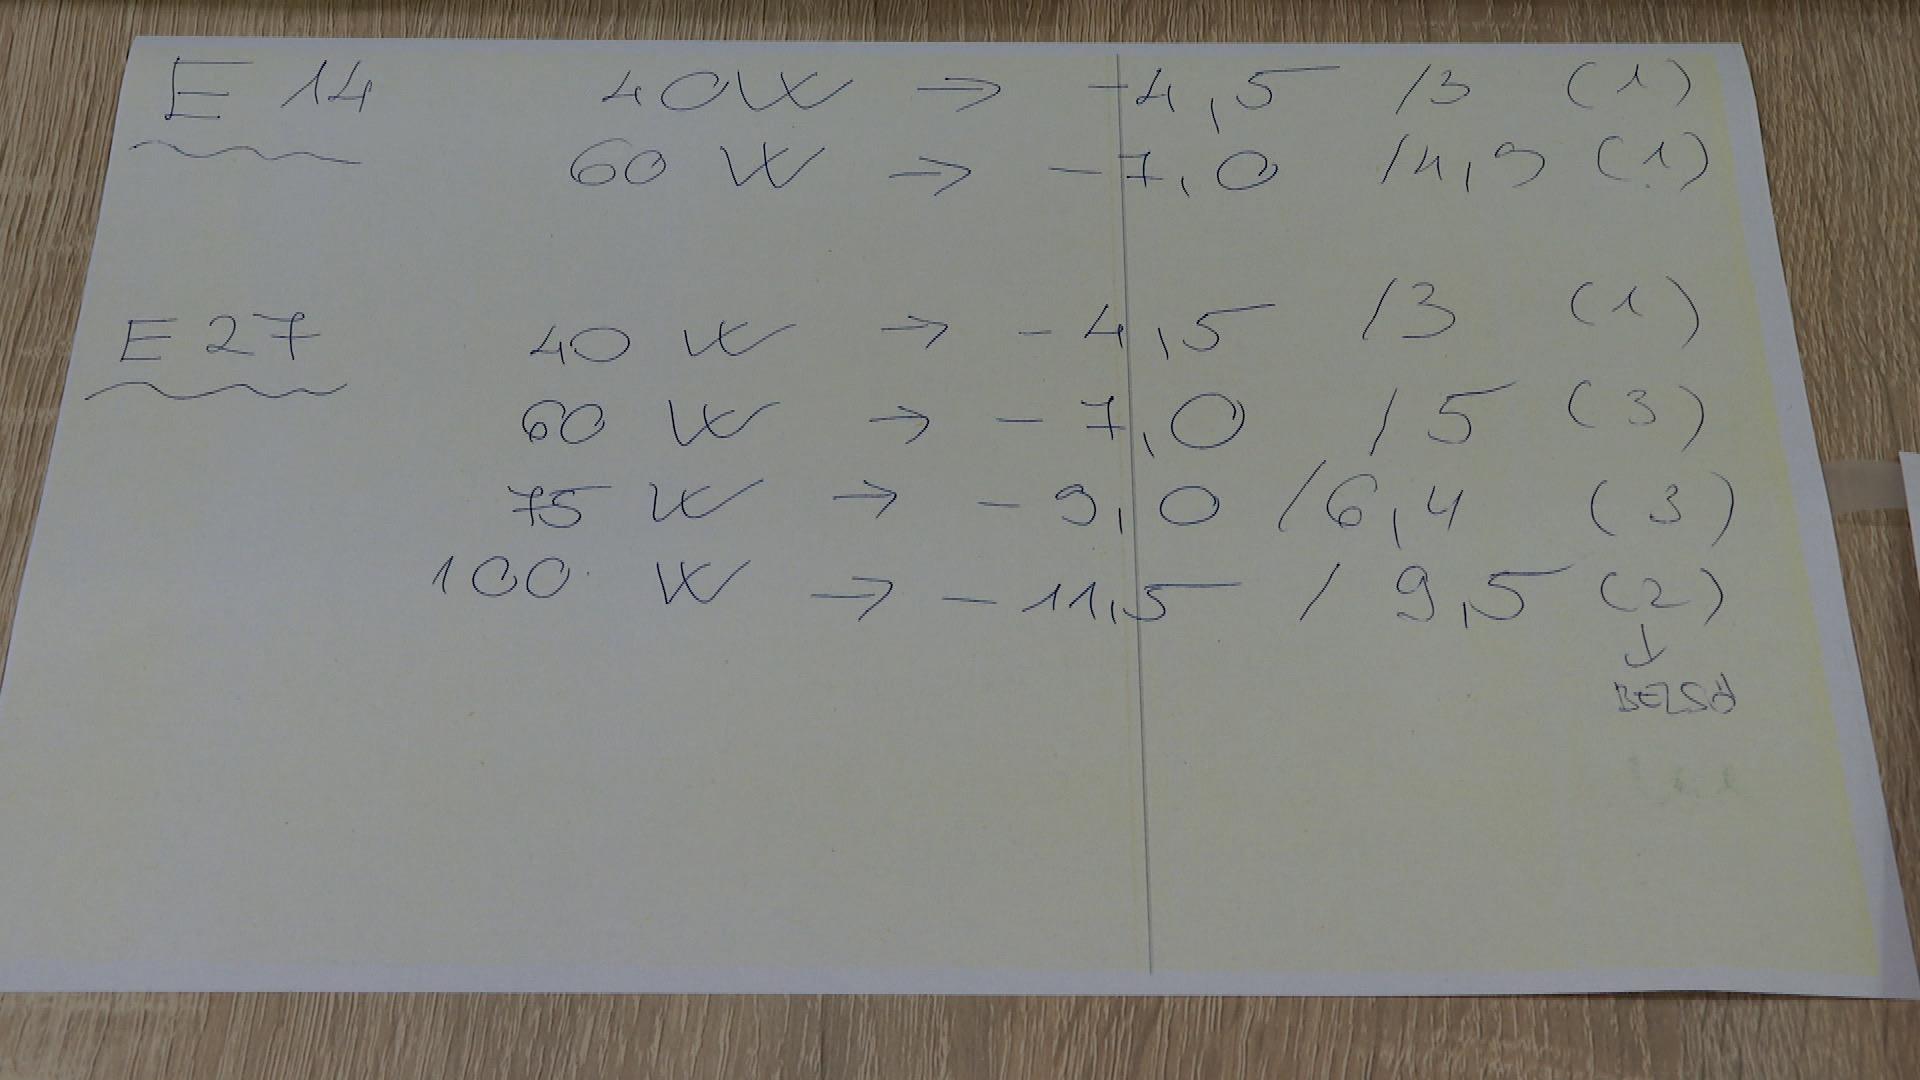 E 14 40W → -4,5 /3 (1)
60 W → -7,0 /4,9 (1)
E 27 40 W → -4,5 /3 (1)
60 W → -7,0 /5 (3)
75 W → -9,0 /6,4 (3)
100 W → -11,5 / 9,5 (2)
↓